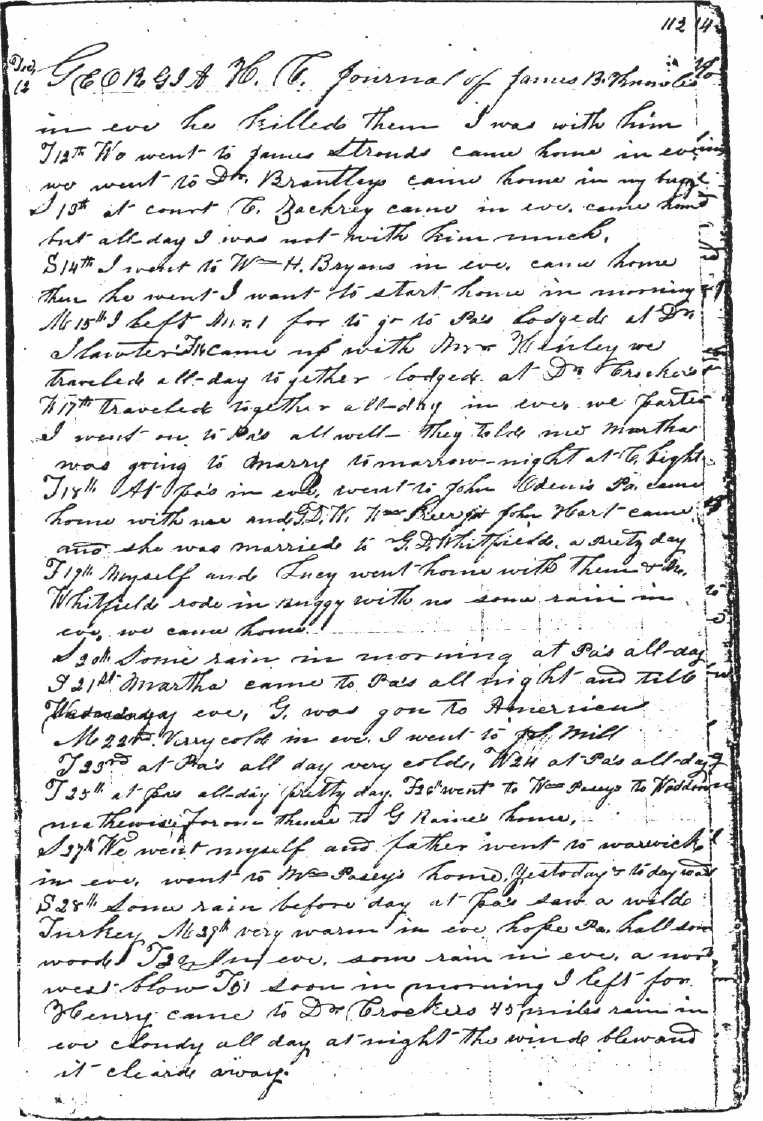 112
Dec 12 GEORGIA H. C. Journal of James B. Knowles
in eve he killed them I was with him
T 12th We went to James Strouds came home in evening
we went to Dr. Brantleys came home in my buggy
S 13th at court C. Zackrey came in eve. came home
but all-day I was not with him much.
S 14th I went to Wm H. Bryans in eve. came home
then he went I want to start home in morning
M 15th I left for to go to Pa's lodged at Dr
Slawter's T16 came up with Mr Henley we
traveled all-day together lodged at Dr Crockers
W 17th traveled together all-day in eve. we parted
I went on to Pa's all well- they told me Martha
was going to Marry tomarrow-night at C. Lights
T 18th At Pa's in eve, went to John Odem's Pa. came
home with me and G.D.W. Wm John Hart came
and she was married to G.D. Whitfield. a prety day
F 19th Myself and Lucy went home with them & Mr.
Whitfield rode in buggy with us some rain in
eve, we came home.
S 20th Some rain in morning at Pa's all-day
S 21st Martha came to Pa's all night and till
Wednesday eve, G. was gon to Americus
M 22nd. Verry cold in eve. I went to Mill
T 23rd at Pa's all day very cold, W24 at Pa's all-day
T 25th at Pa's all-day pretty day. F26th went to Wm Posey's to
mathewis, from thence to G Raines home,
S 27th We went myself and father went to warwick
in eve. went to Wm Posey's home. Yestoday & to day
S 28th Some rain before day at Pa's saw a wild
Turkey M 29th very warm in eve hope Pa. hall som
wood T30 In eve. som rain in eve. a nor
west blow T31 soon in morning I left for
Henry came to Dr Crockers 45 miles rain in
eve cloudy all day at night the wind blew and
it cleard away.